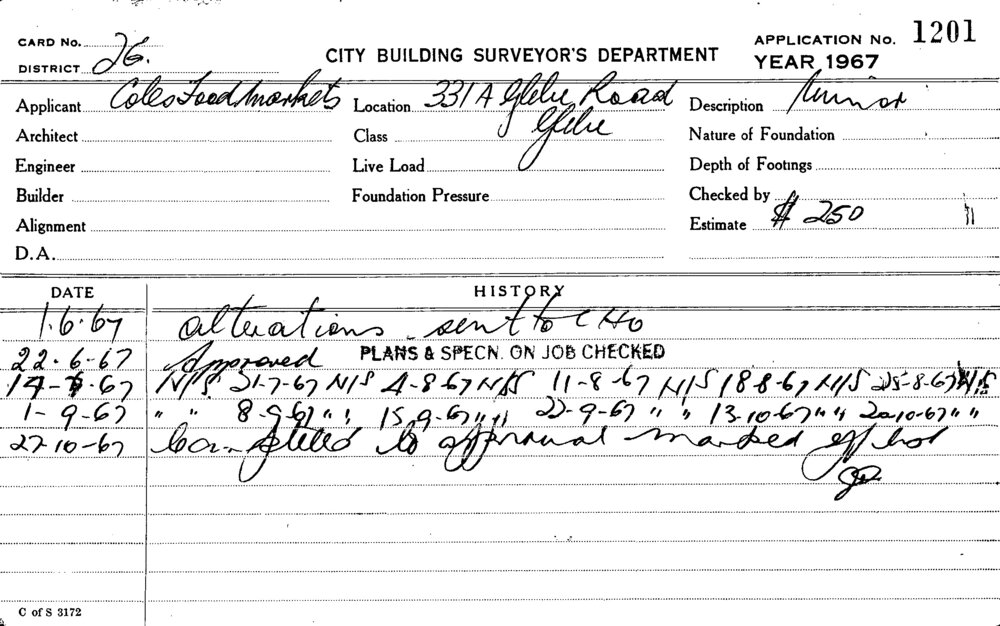 CARD No. 26.
DISTRICT
CITY BUILDING SURVEYOR'S DEPARTMENT
APPLICATION No. 1201
YEAR 1967
Applicant Coles Food Markets Location 331A Glebe Road Description Minor
Architect Class Glebe Nature of Foundation
Engineer Live Load Depth of Footings
Builder Foundation Pressure Checked by
Alignment Estimate $ 250
D.A.
DATE HISTORY
1.6.67 alterations sent to CHO
22.6-67 Approved PLANS & SPECN. ON JOB CHECKED
14-7-67 N/S 21-7-67 N/S 4-8-67 N/S 11-8-67 N/S 18-8-67 N/S 25-8-67 N/S
1-9-67 " " 8-9-67 " " 15-9-67 " " 22-9-67 " " 13-10-67 " " 20-10-67 " "
27-10-67 Completed to approval marked off
C of S 3172